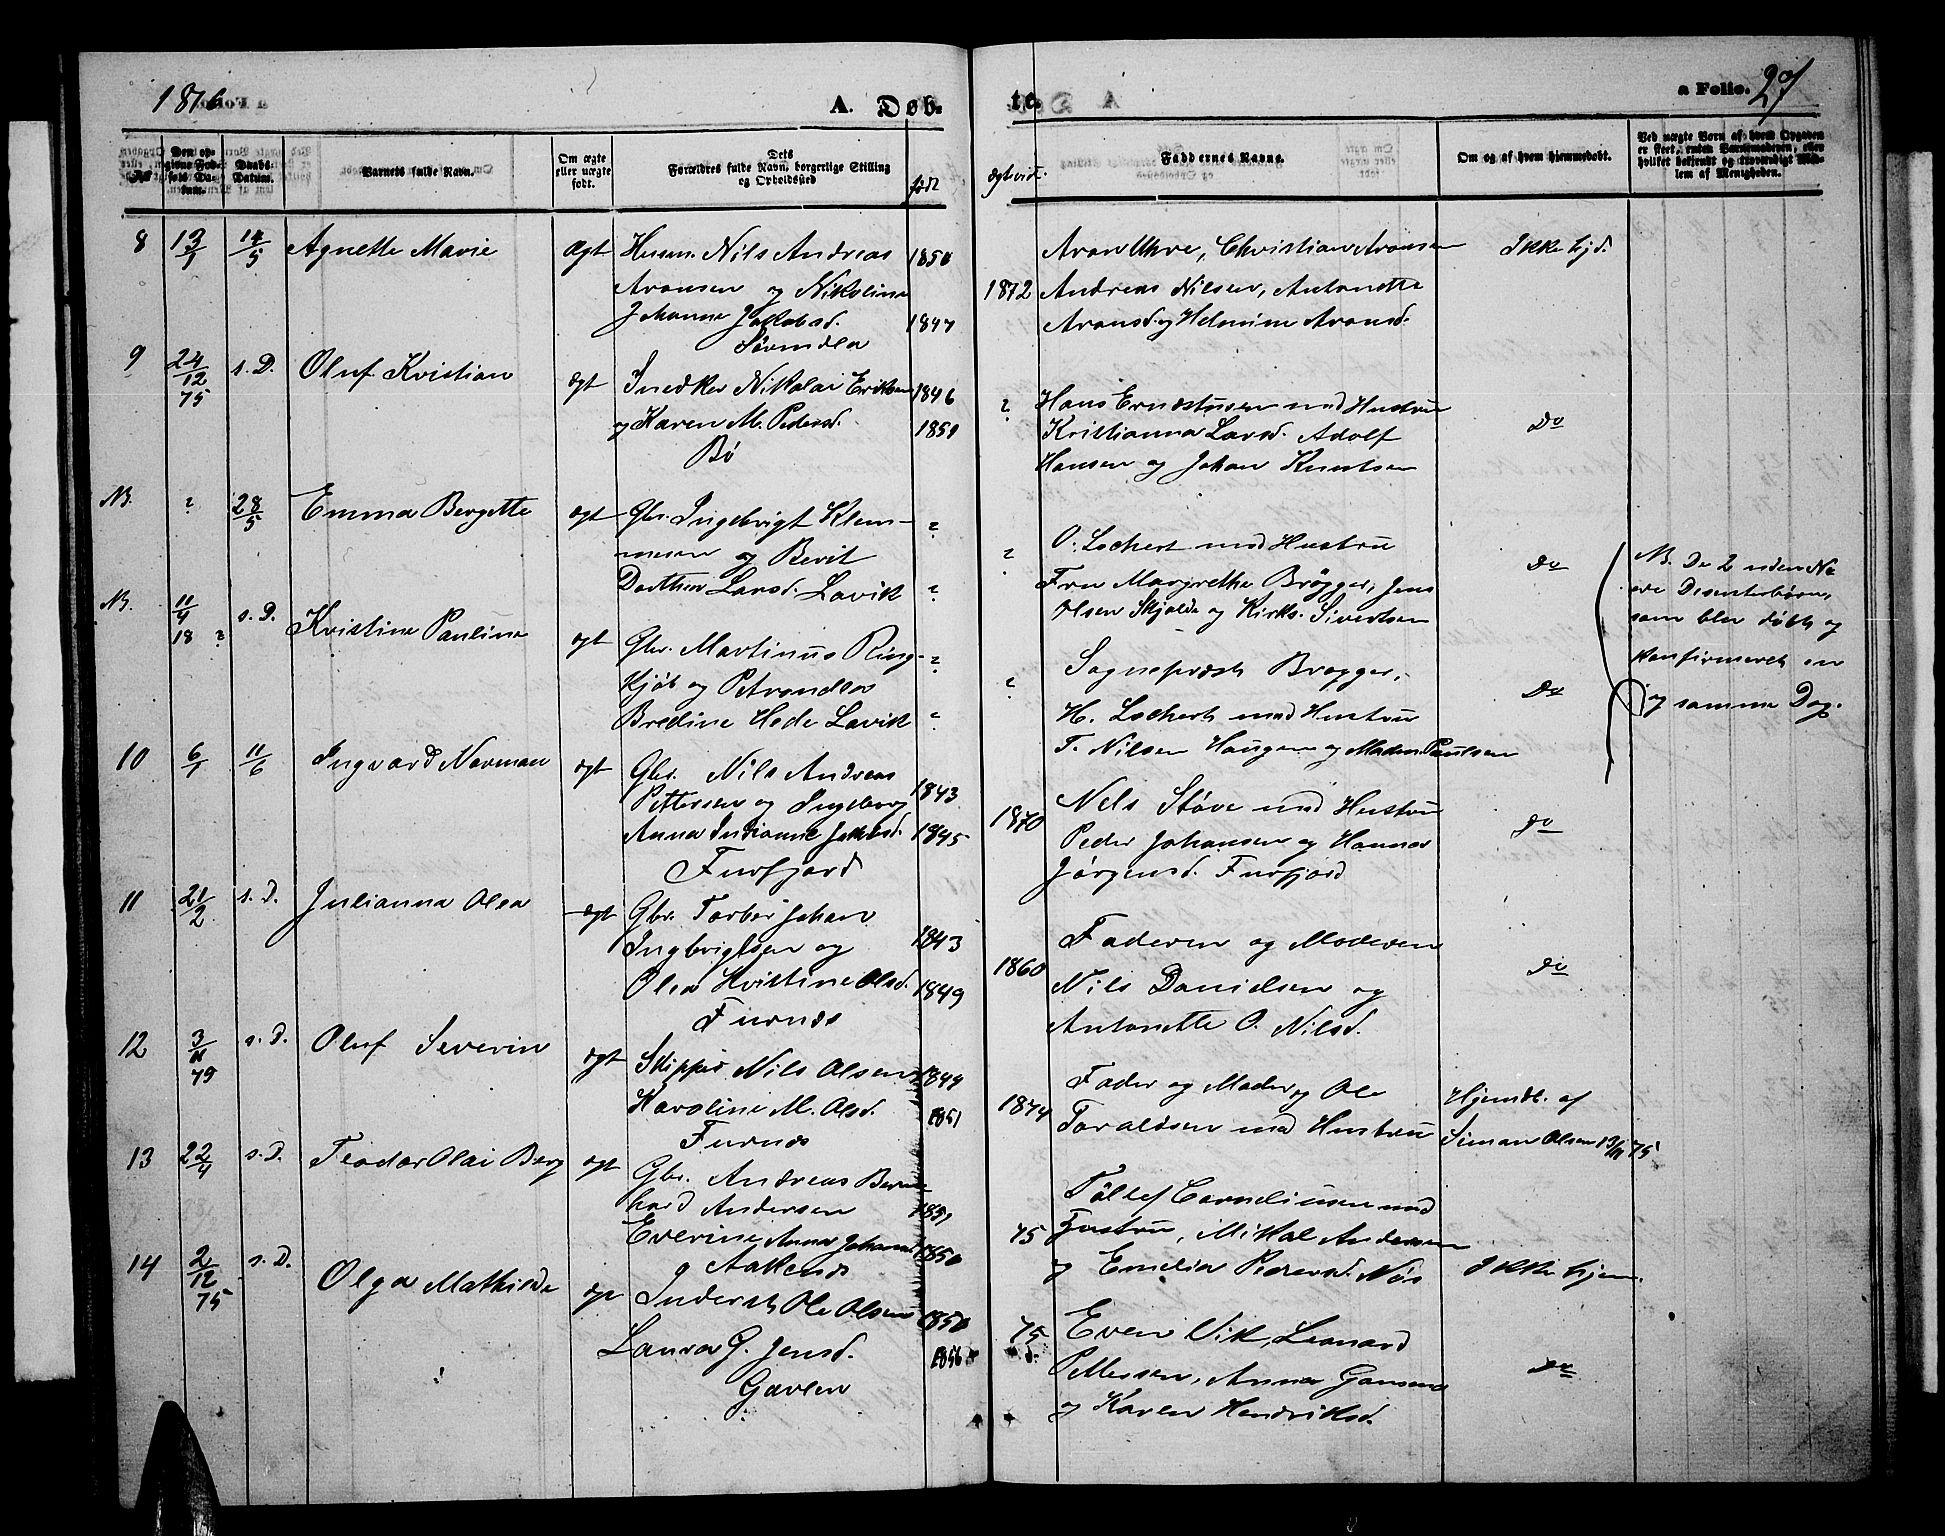 1876
A. Døb-
te.
a Folio. 27
No
Den op-
givne Fød-
sels Da-
tum.
Daabs-
Datum.
Barnets fulde Navn.
Om ægte
eller uægte
født.
Dets
Forældres fulde Navn, borgerlige Stilling
og Opholdssted
født
Ægtvid.
Faddernes Navne.
Om og af hvem hjemmedøbt.
Ved uægte Børn af hvem Opgaven
er skeet, enten Barnemoderen, eller
hvilket bekjendt og troværdigt Med-
lem af Menigheden.
8 13/1 14/5 Agnette Marie Ægt Husm. Nils Andreas 1850
Aronsen og Nikoline
Johanne Jakobsd. 1847
1872
Aron Uhre, Christian Aronsen
Andreas Nilsen, Antonette
Aronsd. og Helmine Aronsd.
Ikke hjd.
9 24/12 75 s. D. Oluf Kristian ægt Snedker Nikolai Eriksen 1846
og Karen M. Pedersd. 1851
Bø
? Hans Ernstusen med Hustru
Kristianna Larsd. Adolf
Hansen og Johan Knutsen
Do
NB. ? 28/5 Emma Bergette ægt Gbr. Ingebrigt Klem- ?
mesen og Berit
Dorthea Larsd. Lavik ?
? O. Lochert med Hustru
Fru Margrethe Brøgger, Jens
Olsen Skjolde og Kirks. Sivertsen
Do
NB. De 2 uden No
ere Desenterbørn,
som blev døbt og
konfirmeret en
og samme Dag.
NB. 11/4 18 ? s. D. Kristine Pauline ægt Gbr. Martinus Ring- ?
kjøb og Petrandea
Bredine Hede Lavik ?
? Sognepræst Brøgger,
H. Lochert med Hustru
T. Nilsen Haugen og Madm. Paulsen
Do
10 6/1 11/6 Ingvard Norman ægt Gbr. Nils Andreas 1843
Pettersen og Ingeborg
Anna Julianne Jakobsd. 1845
Furfjord
1870 Nels Støve med Hustru
Peder Johansen og Hanna
Jørgensd. Furfjord
Do
11 21/2 s. D. Julianna Olea ægt Gbr. Torber Johan 1843
Ingbrigtsen og
Olea Kristine Olsd. 1849
Furnes
1860 Faderen og Moderen
Nils Danielsen og
Antonette O. Nilsd.
Do
12 3/11 75 s. D. Oluf Severin ægt Skipper Nils Olsen 1849
Karoline M. Olsd. 1851
Furnes
1874 Fader og Moder og Ole
Toraldsen med Hustru
Hjemdb. af
Simon Olsen 13/11 75
13 22/4 s. D. Teodor Olai Berg ægt Gbr. Andreas Bern-
hard Andersen 1851
Everine Anna Johansd. 1850
Aakenes
75 Tollef Corneliusen med
Hustru, Mikal Andersen
og Emelia Pedersd. Nøs
Ikke hjem.
14 2/12 75 s. D. Olga Mathilde ægt Inderst Ole Olsen 1850
Laura G. Jensd. 1856
Gavlen
75 Even Vik, Leonard
Pettersen, Anna Hansend
og Karen Hendriksd.
Do